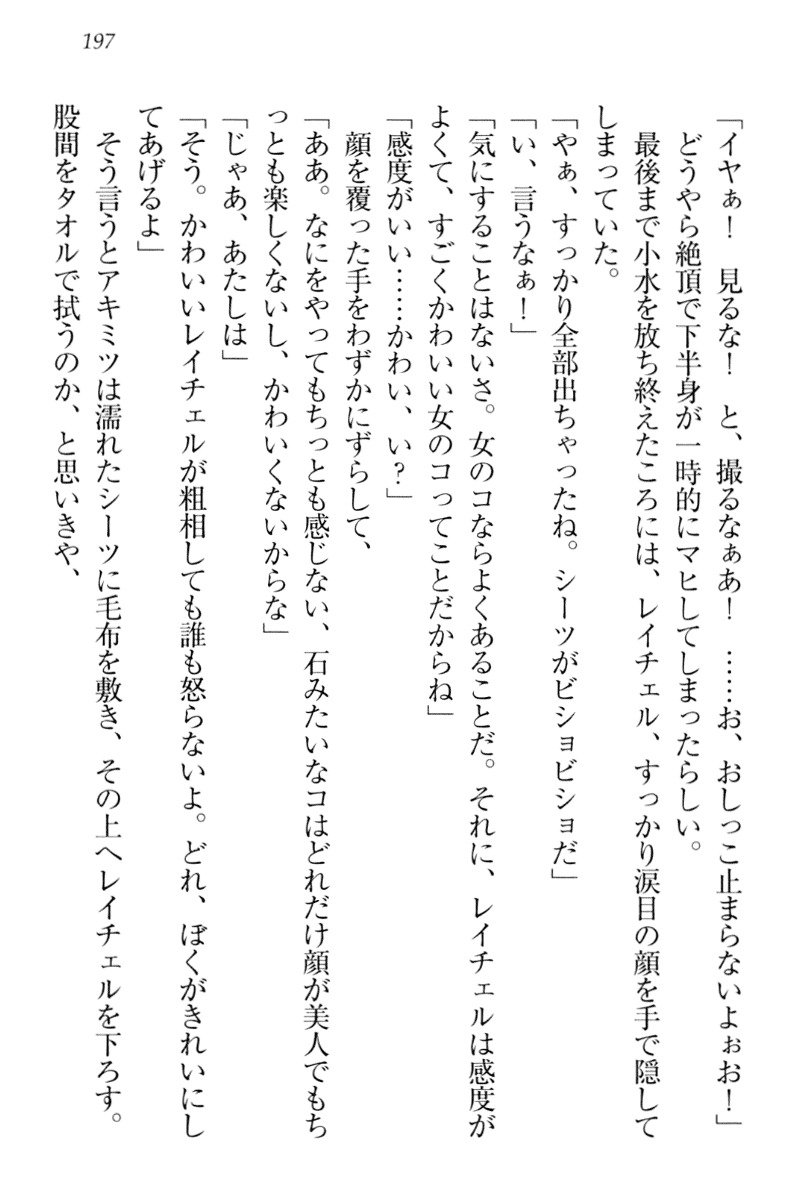 197
「イヤぁ！　見るな！　と、撮るなぁあ！　……お、おしっこ止まらないよぉお！」
どうやら絶頂で下半身が一時的にマヒしてしまったらしい。
最後まで小水を放ち終えたころには、レイチェル、すっかり涙目の顔を手で隠して
しまっていた。
「やぁ、すっかり全部出ちゃったね。シーツがビショビショだ」
「い、言うなぁ！」
「気にすることはないさ。女のコならよくあることだ。それに、レイチェルは感度が
よくて、すごくかわいい女のコってことだからね」
「感度がいい……かわい、い？」
顔を覆った手をわずかにずらして、
「ああ。なにをやってもちっとも感じない、石みたいなコはどれだけ顔が美人でもち
っとも楽しくないし、かわいくないからな」
「じゃあ、あたしは」
「そう。かわいいレイチェルが粗相しても誰も怒らないよ。どれ、ぼくがきれいにし
てあげるよ」
そう言うとアキミツは濡れたシーツに毛布を敷き、その上へレイチェルを下ろす。
股間をタオルで拭うのか、と思いきや、